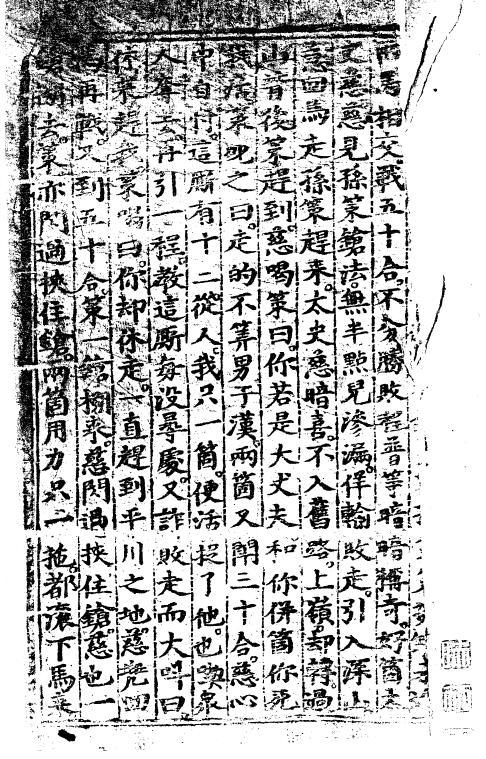 兩馬相交戰五十合不分勝敗程普等暗暗稱奇好箇太
史慈慈見孫策鎗法無半點兒滲漏佯輸敗走引入深山
慈回馬走孫策趕來太史慈暗喜不入舊路上嶺却轉過
山背後策趕到慈喝策曰你若是大丈夫和你併箇你死
我活策叱之曰走的不筭男子漢兩箇又鬪三十合慈心
中自忖這厮有十二從人我只一箇便活捉了他也喫衆
人奪去再引一程教這厮每没尋處又詐敗走而大呌曰
你來趕我策喝曰你却休走一直趕到平川之地慈兜回
馬再戰又到五十合策一鎗搠來慈閃過挾住鎗慈也一
鎗搠去策亦閃過挾住鎗兩箇用力只一拖都滚下馬來